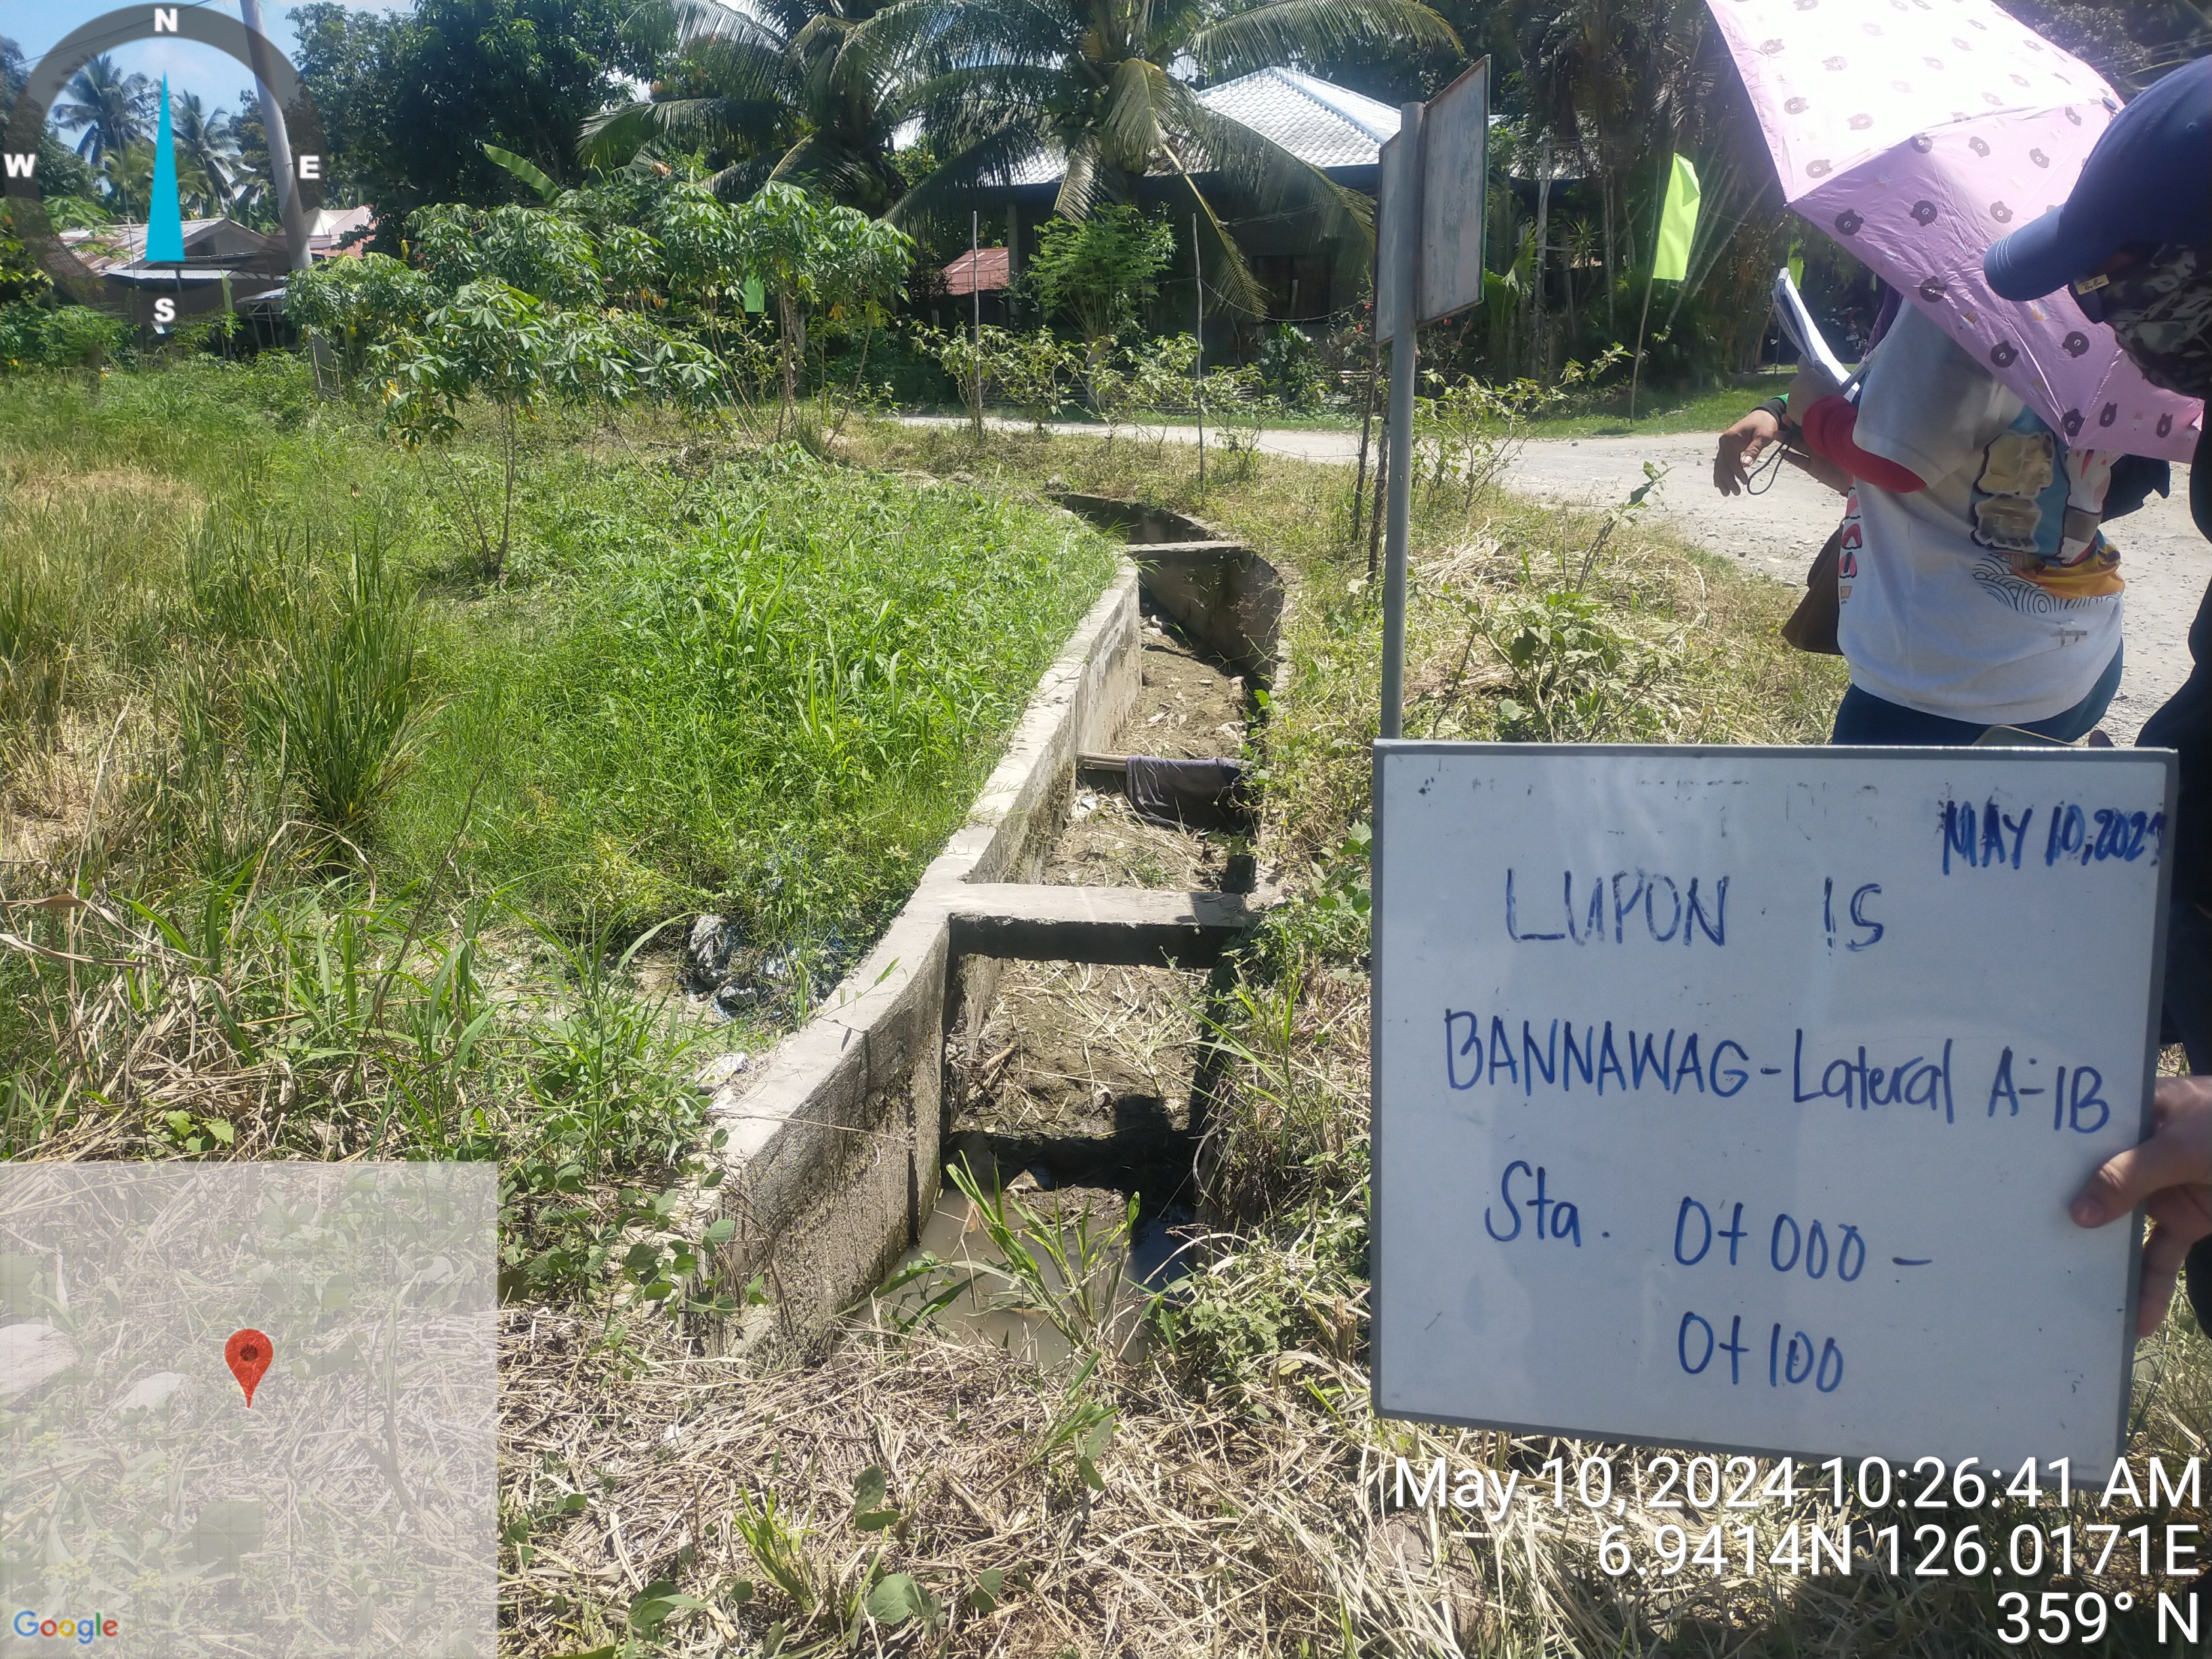 N
W E
S
MAY 10, 2024
LUPON IS
BANNAWAG-Lateral A-1B
Sta. 0+000 -
0+100
May 10, 2024 10:26:41 AM
6.9414N 126.0171E
359° N
Google